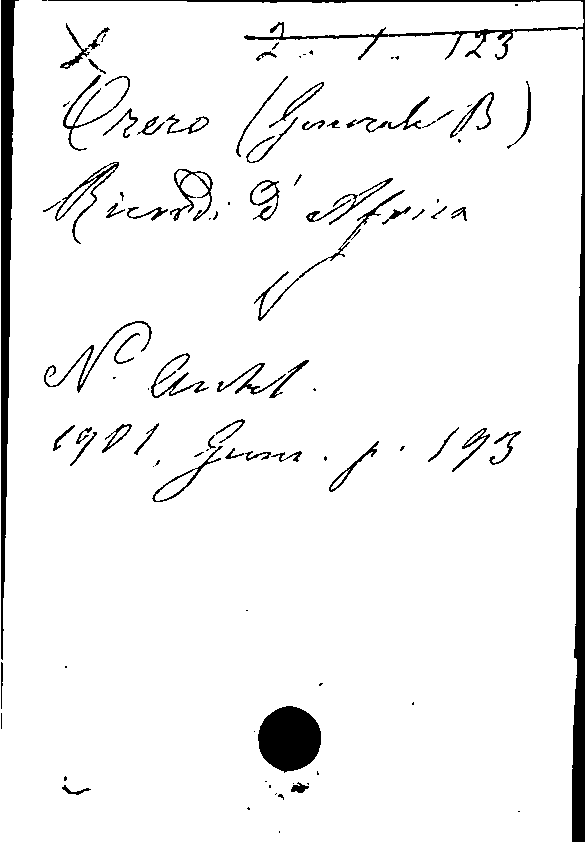 X 2. 1. 123
Orero (Generale B)
Ricordi d'Africa
Nª Antol.
1901, Genn. p. 193